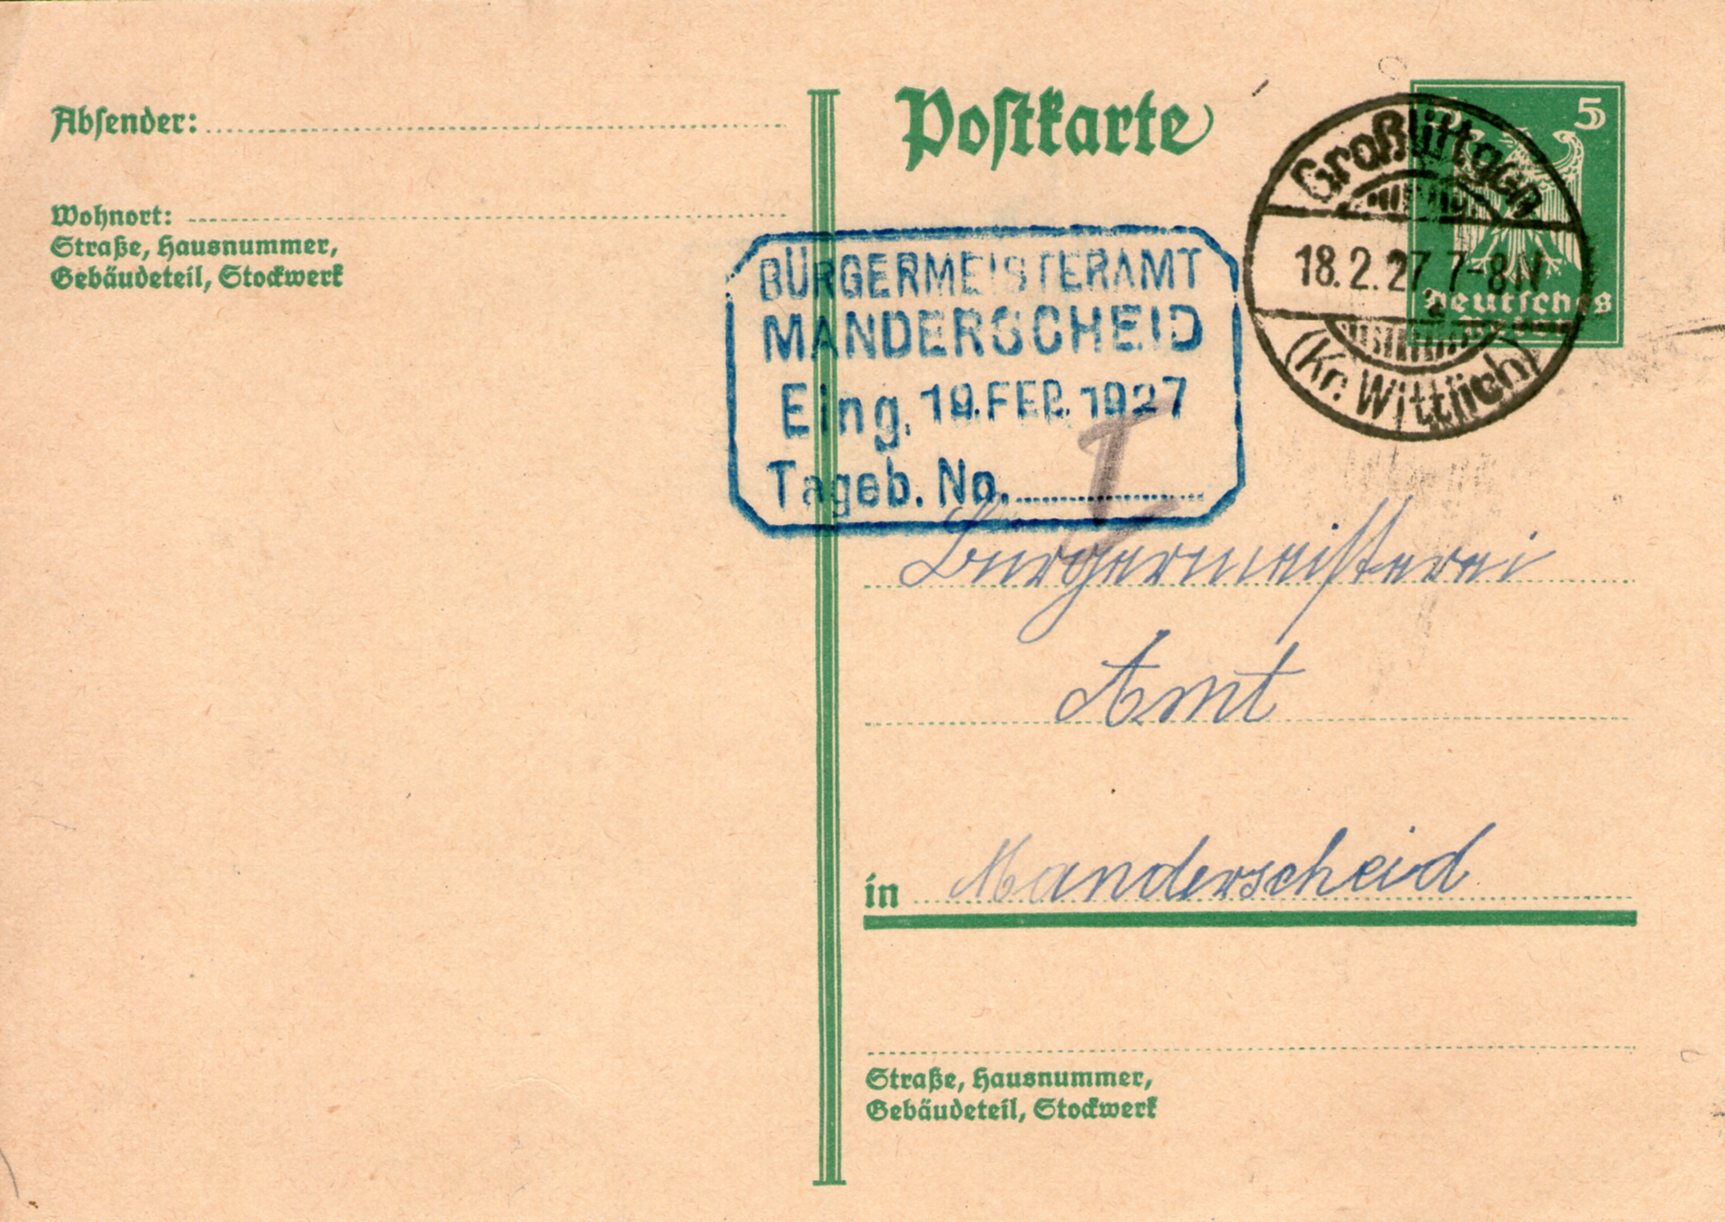 Absender:
Wohnort:
Straße, Hausnummer,
Gebäudeteil, Stockwerk
Postkarte
5
Deutsches
Großlittgen
18.2.27. 7-8 N
(Kr. Wittlich)
BÜRGERMEISTERAMT
MANDERSCHEID
Eing. 19. FEB. 1927
Tageb. No.
I
Bürgermeisterei
Amt
in Manderscheid
Straße, Hausnummer,
Gebäudeteil, Stockwerk